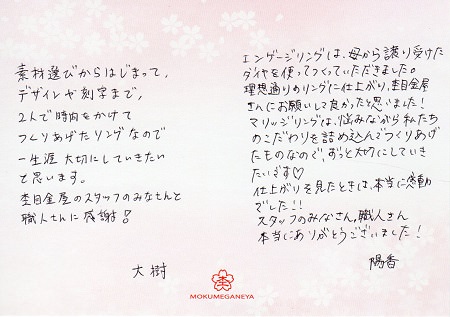 素材選びからはじまって、
デザインや刻字まで、
2人で時間をかけて
つくりあげたリングなので
一生涯 大切にしていきたい
と思います。
杢目金屋のスタッフのみなさんと
職人さんに感謝!
大樹
エンゲージリングは、母から譲り受けた
ダイヤを使ってつくっていただきました。
理想通りのリングに仕上がり、杢目金屋
さんにお願いして良かったと思いました!
マリッジリングは、悩みながら私たち
のこだわりを詰め込んでつくりあげ
たものなので、ずっと大切にしていき
たいです♡
仕上がりを見たときは、本当に感動
でした!!
スタッフのみなさん、職人さん
本当にありがとうございました!
陽香
MOKUMEGANEYA